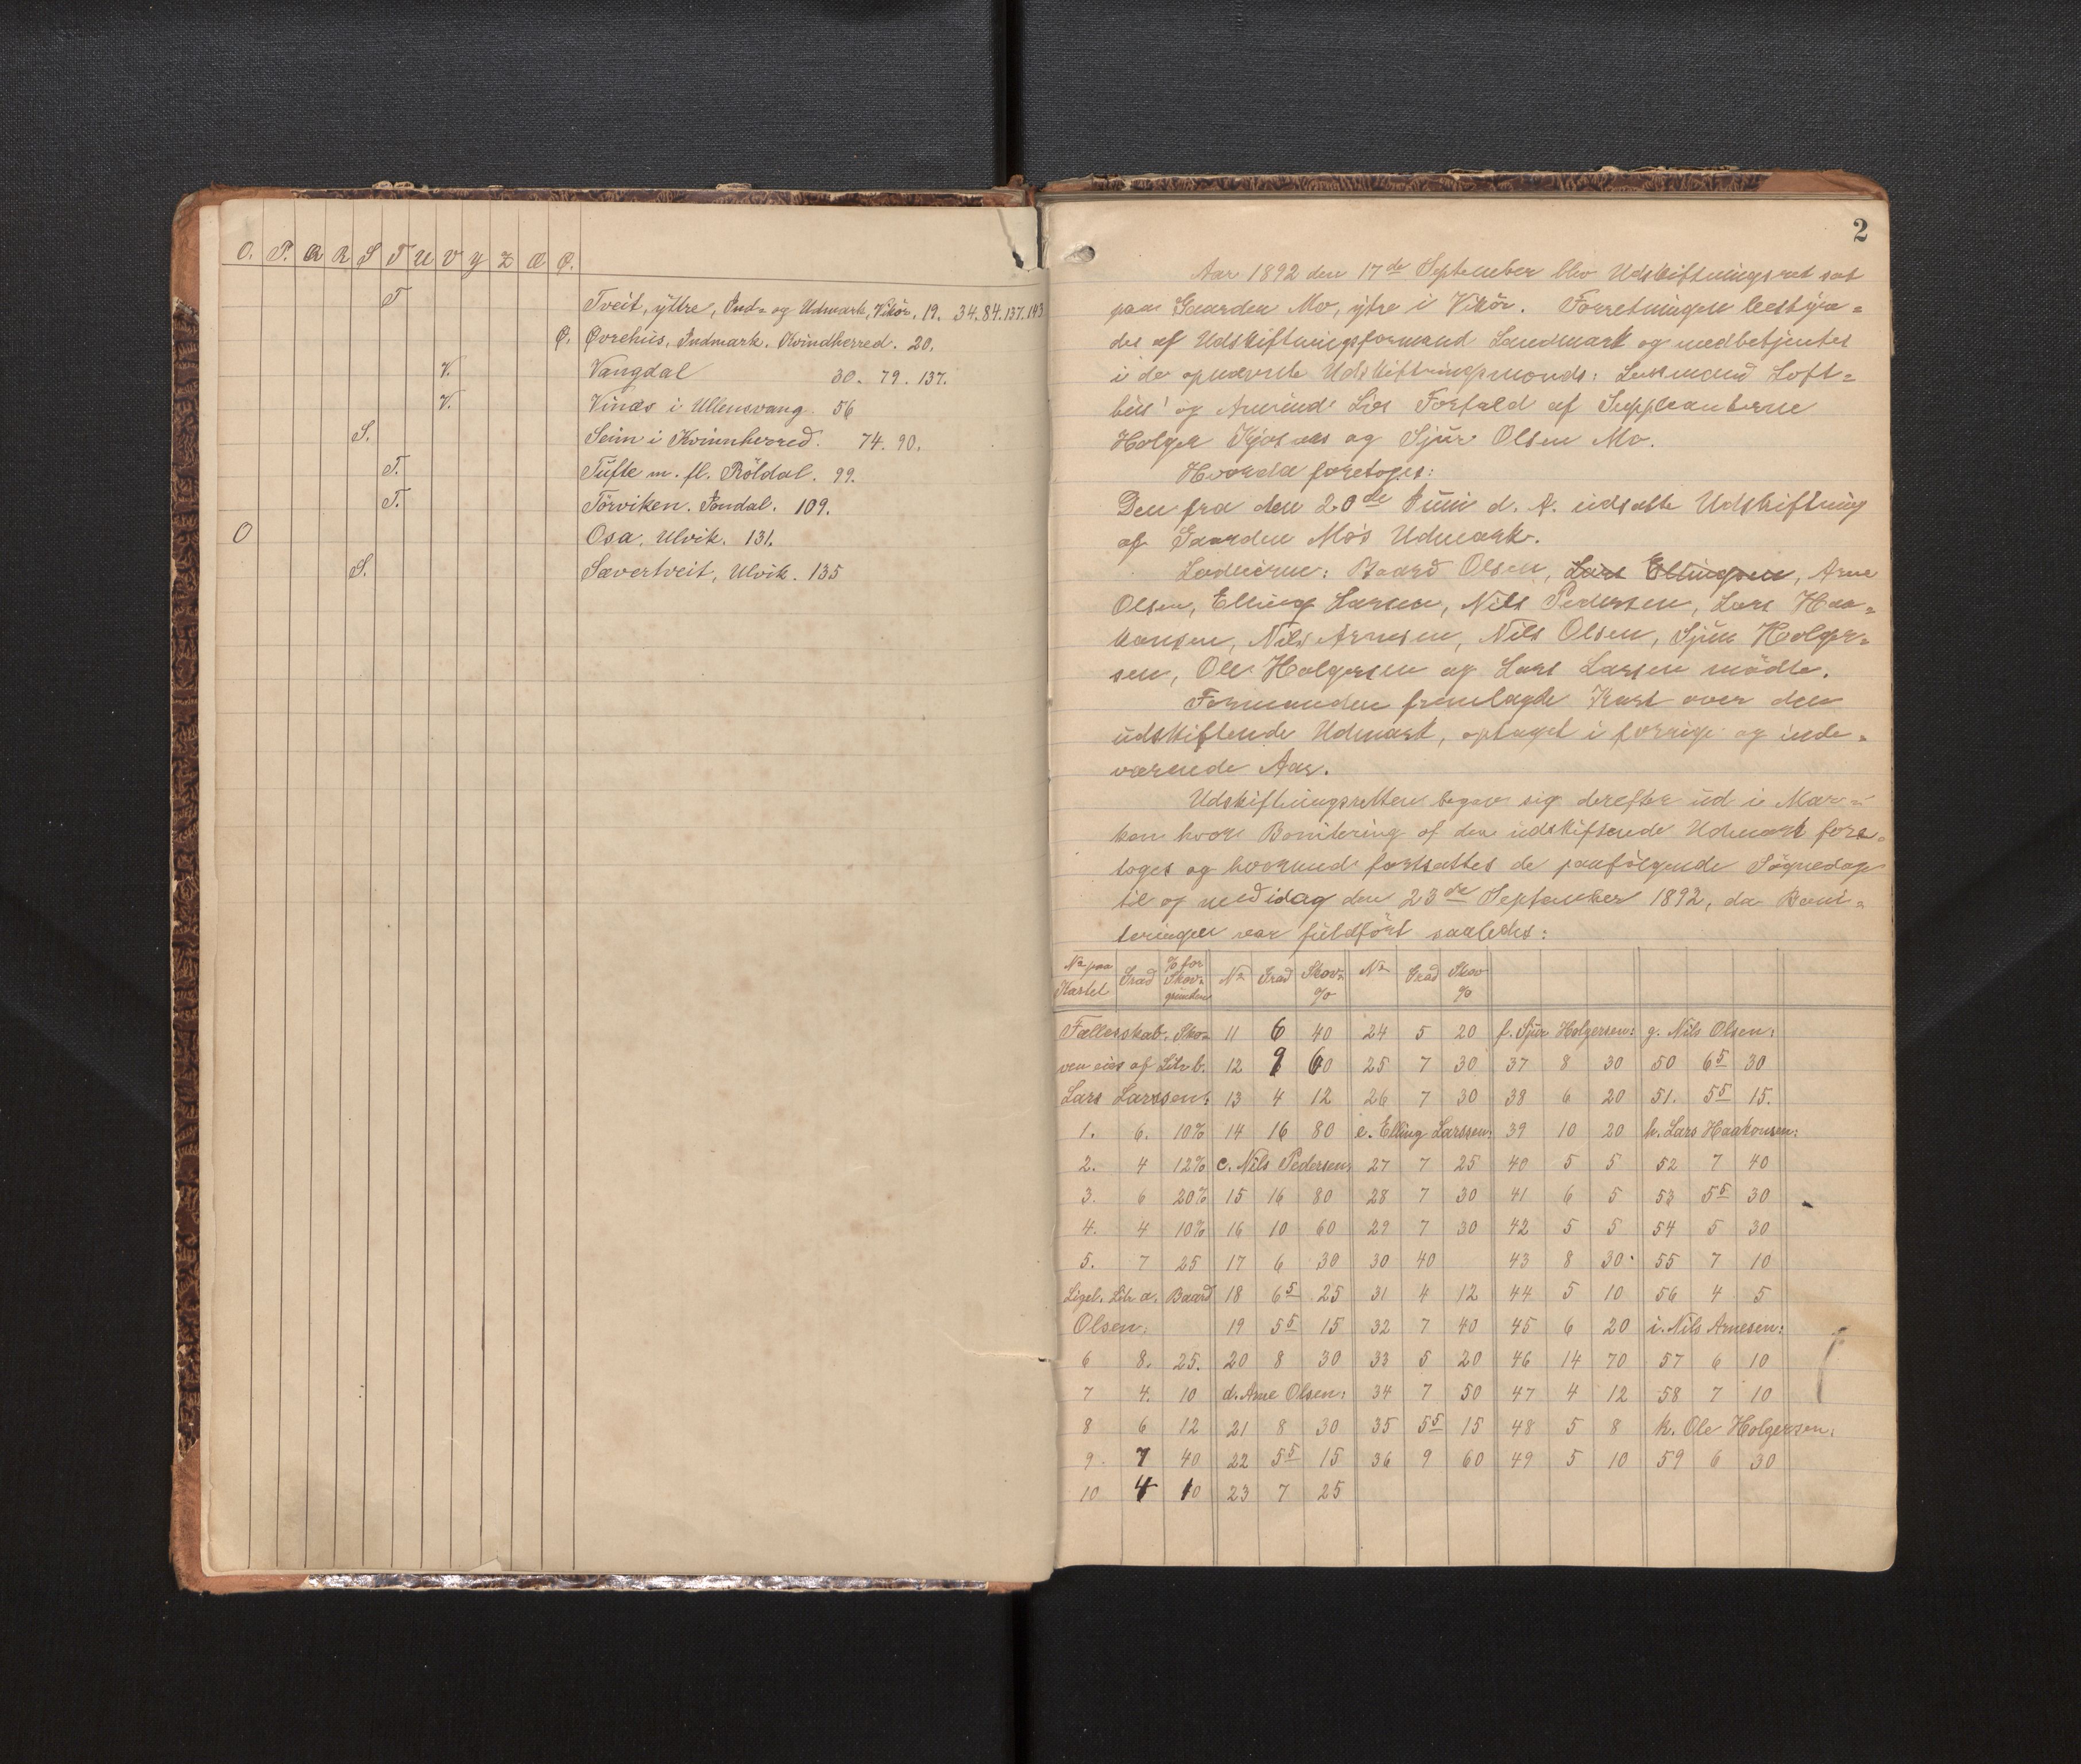 O. P. Q R S T U V Y Z Æ Ø.
T Tveit, ýttre, Ind= og Udmark, Vikör, 19. 34. 84. 137. 143
Ø. Øvrehus, Indmark. Kvindherred. 20.
V. Vangdal 30. 79. 137.
V. Vinæs i Ullensvang. 56
S. Seim i Kvinnherred. 74. 90.
T. Tufte m. fl. Röldal. 99.
T. Törviken. Jondal. 109.
O Osa, Ulvik. 131.
S. Sævertveit, Ulvik. 135
2
Aar 1892 den 17de September blev Udskiftningsret sat
paa Gaarden Mo, ýtre i Vikör. Forretningen bestýre=
des af Udskiftningsformand Landmark og medbetjentes
i de opnævnte Udskiftningsmænds: Lensmand Loft=
hus' og Amund Lies Forfald af Suppleanterne
Holger Kjosaas og Sjur Olsen Mo.
Hvorda foretoges:
Den fra den 20de Juni d. A. udsatte Udskiftning
af Gaarden Mo's Udmark.
Lodeierne: Baard Olsen, Lars Ellingsen, Arne
Olsen, Elling Larsen, Nils Pedersen, Lars Haa=
konsen, Nils Arnesen, Nils Olsen, Sjur Holger=
sen, Ole Holgersen og Lars Larsen mödte.
Formanden fremlagde Kart over den
udskiftende Udmark, optaget i forrige og inde=
værende Aar.
Udskiftningsretten begav sig derefter ud i Mar=
ken hvor Bonitering af den udskiftende Udmark fore=
toges og hvormed fortsattes de paafölgende Sögnedage
til og med idag den 23de September 1892, da Boni=
teringen var fuldfört saaledes:
No paa Kartet Grad % for Skov=grunden No Grad Skov= % No Grad Skov %
Fællesskab. Sko= 11 6 40 24 5 20 f. Sjur Holgersen: g. Nils Olsen:
ven eies af Litr b. 12 9 60 25 7 30 37 8 30 50 65 30
Lars Larssen: 13 4 12 26 7 30 38 6 20 51. 55 15.
1. 6. 10% 14 16 80 e. Elling Larssen: 39 10 20 h. Lars Haakonsen:
2. 4 12% c. Nils Pedersen: 27 7 25 40 5 5 52 7 40
3. 6 20% 15 16 80 28 7 30 41 6 5 53 55 30
4. 4 10% 16 10 60 29 7 30 42 5 5 54 5 30
5. 7 25 17 6 30 30 40 43 8 30. 55 7 10
Ligel. Litr a. Baard 18 65 25 31 4 12 44 5 10 56 4 5
Olsen: 19 55 15 32 7 40 45 6 20 i. Nils Arnesen:
6 8. 25. 20 8 30 33 5 20 46 14 70 57 6 10
7 4. 10 d. Arne Olsen: 34 7 50 47 4 12 58 7 10
8 6 12 21 8 30 35 55 15 48 5 8 k. Ole Holgersen:
9. 7 40 22 55 15 36 9 60 49 5 10 59 6 30
10 4 10 23 7 25